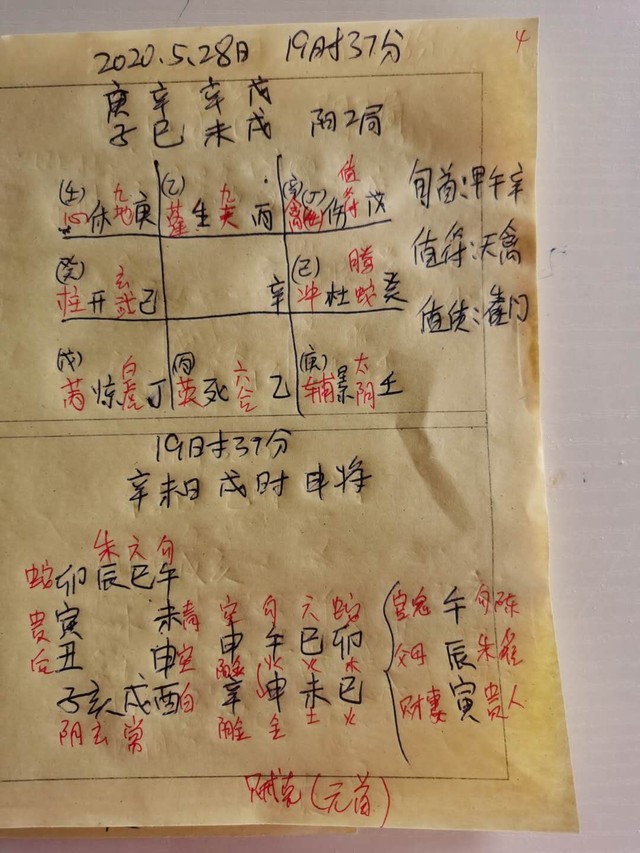 4
2020.5.28日 19时37分
庚 辛 辛 戊
子 巳 未 戌 阴2局
(壬) 九地 (乙) 九天 (辛)(丁) 值符
心 休 庚 蓬 生 丙 禽 伤 戊
旬首:甲午辛
(癸) 玄武 (己) 腾蛇
柱 开 己 辛 冲 杜 癸
值符:天禽
值使:
(戊) 白虎 (丙) 六合 (庚) 太阴
芮 惊 丁 英 死 乙 辅 景 壬
19时37分
辛未日 戌时 申将
朱 六 勾
蛇 卯 辰 巳 午
贵 寅 未 青 空 勾 六 蛇 官鬼 午 勾陈
后 丑 申 空 申 午 巳 卯 父母 辰 朱雀
子 亥 戌 酉 白 辛 申 未 巳 财妻 寅 贵人
阴 玄 常 金 土 火
贼克(元首)